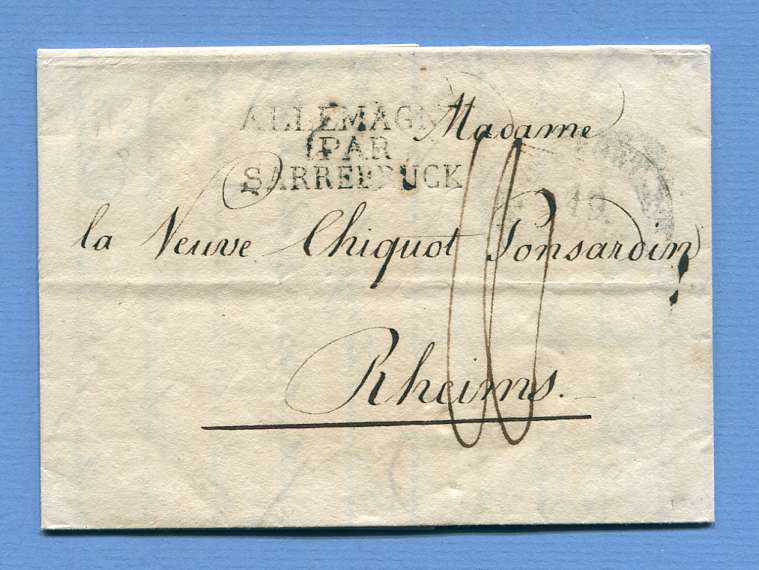 ALLEMAGNE
PAR
SARREBRUCK
Madame
la Veuve Chiquot Ponsardin
Rheims.